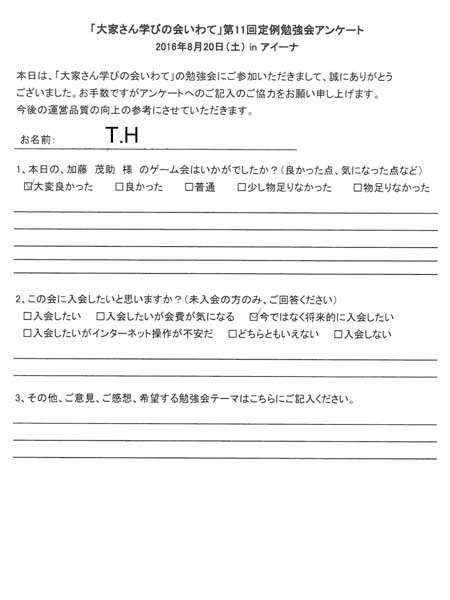 「大家さん学びの会いわて」第11回定例勉強会アンケート
2016年8月20日(土) in アイーナ
本日は、「大家さん学びの会いわて」の勉強会にご参加いただきまして、誠にありがとう
ございました。お手数ですがアンケートへのご記入のご協力をお願い申し上げます。
今後の運営品質の向上の参考にさせていただきます。
お名前: T.H
1、本日の、加藤 茂助 様 のゲーム会はいかがでしたか?(良かった点、気になった点など)
☑大変良かった □良かった □普通 □少し物足りなかった □物足りなかった
2、この会に入会したいと思いますか?(未入会の方のみ、ご回答ください)
□入会したい □入会したいが会費が気になる ☑今ではなく将来的に入会したい
□入会したいがインターネット操作が不安だ □どちらともいえない □入会しない
3、その他、ご意見、ご感想、希望する勉強会テーマはこちらにご記入ください。